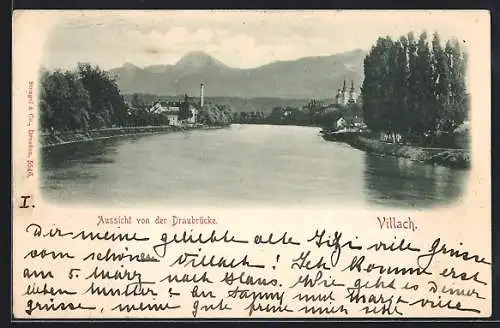 Stengel & Co., Dresden, 5546.
Aussicht von der Draubrücke.
Villach.
I.
Dir meine geliebte alte Gitzi viele Grüsse
vom schönen Villach! Ich komme erst
am 5. März nach Haus. Wie geht es Deiner
lieben Mutter? An und viele
grüsse, meine gute